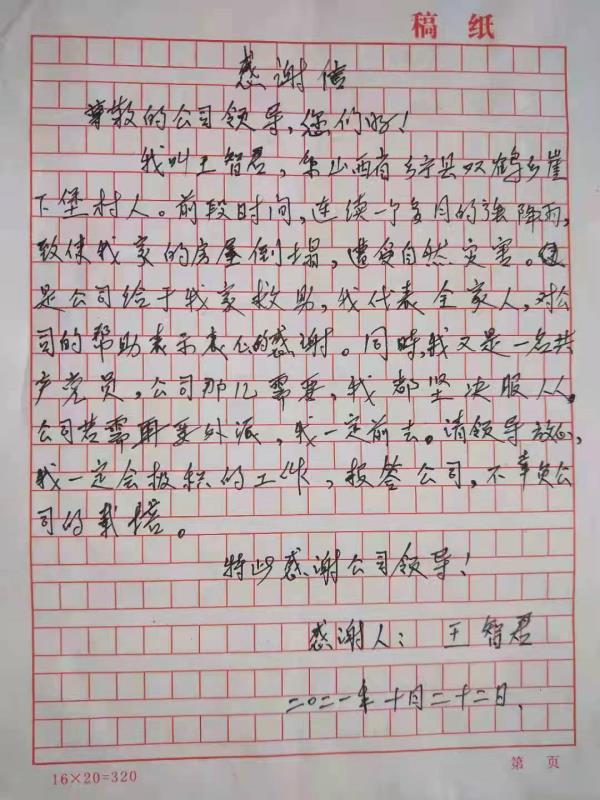 稿纸
感谢信
尊敬的公司领导，您们好！
我叫王智君，系山西省乡宁县双鹤乡崖
下堡村人。前段时间，连续一个多月的强降雨，
致使我家的房屋倒塌，遭受自然灾害。
是公司给于我家救助，我代表全家人，对公
司的帮助表示衷心的感谢。同时，我又是一名共
产党员，公司那儿需要，我都坚决服从。
公司若需要外派，我一定前去。请领导放心，
我一定会极积的工作，报答公司，不辜负公
司的栽培。
特此感谢公司领导！
感谢人：王智君
二〇二一年十月二十二日。
16×20=320
第 页